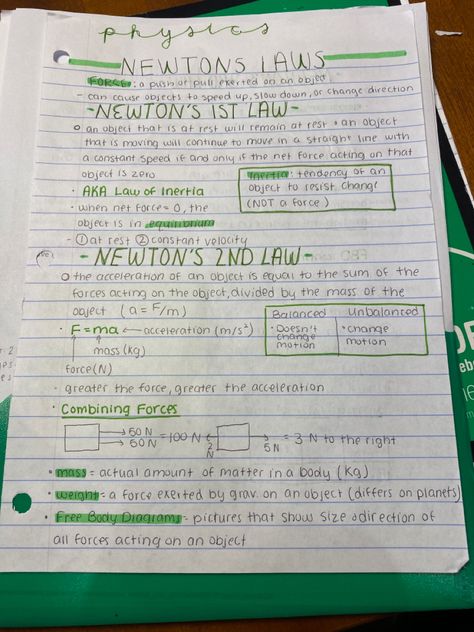 physics
NEWTONS LAWS
FORCE: a push or pull exerted on an object
- can cause objects to speed up, slow down, or change direction
- NEWTON'S 1ST LAW -
an object that is at rest will remain at rest & an object
that is moving will continue to move in a straight line with
a constant speed if and only if the net force acting on that
object is zero
• AKA Law of Inertia
Inertia: tendency of an
object to resist change
(NOT a force)
• when net force = 0, the
object is in equilibrium
- ① at rest ② constant velocity
- NEWTON'S 2ND LAW -
the acceleration of an object is equal to the sum of the
forces acting on the object, divided by the mass of the
object (a = F/m)
Balanced Unbalanced
• Doesn't change motion
• change motion
• F = ma ← acceleration (m/s²)
mass (kg)
force (N)
- greater the force, greater the acceleration
• Combining Forces
→ 50 N
→ 50 N = 100 N
N
5 N = 3 N to the right
• mass = actual amount of matter in a body (kg)
• weight = a force exerted by grav. on an object (differs on planets)
• Free Body Diagrams - pictures that show size & direction of
all forces acting on an object